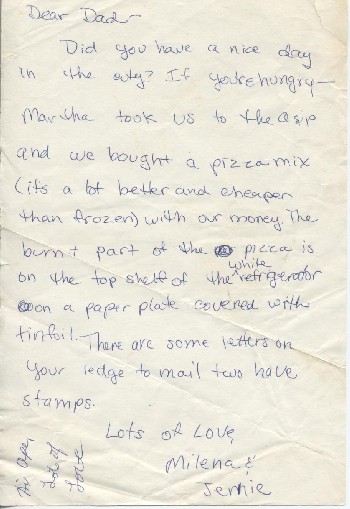 Dear Dad-
Did you have a nice day
in the city? If you're hungry-
Martha took us to the a&p
and we bought a pizza mix
(its a lot better and cheaper
than frozen) with our money. The
burnt part of the pizza is
on the top shelf of the white refrigerator
on a paper plate covered with
tinfoil. There are some letters on
your ledge to mail two have
stamps.
Lots of Love,
Milena &
Jennie
love